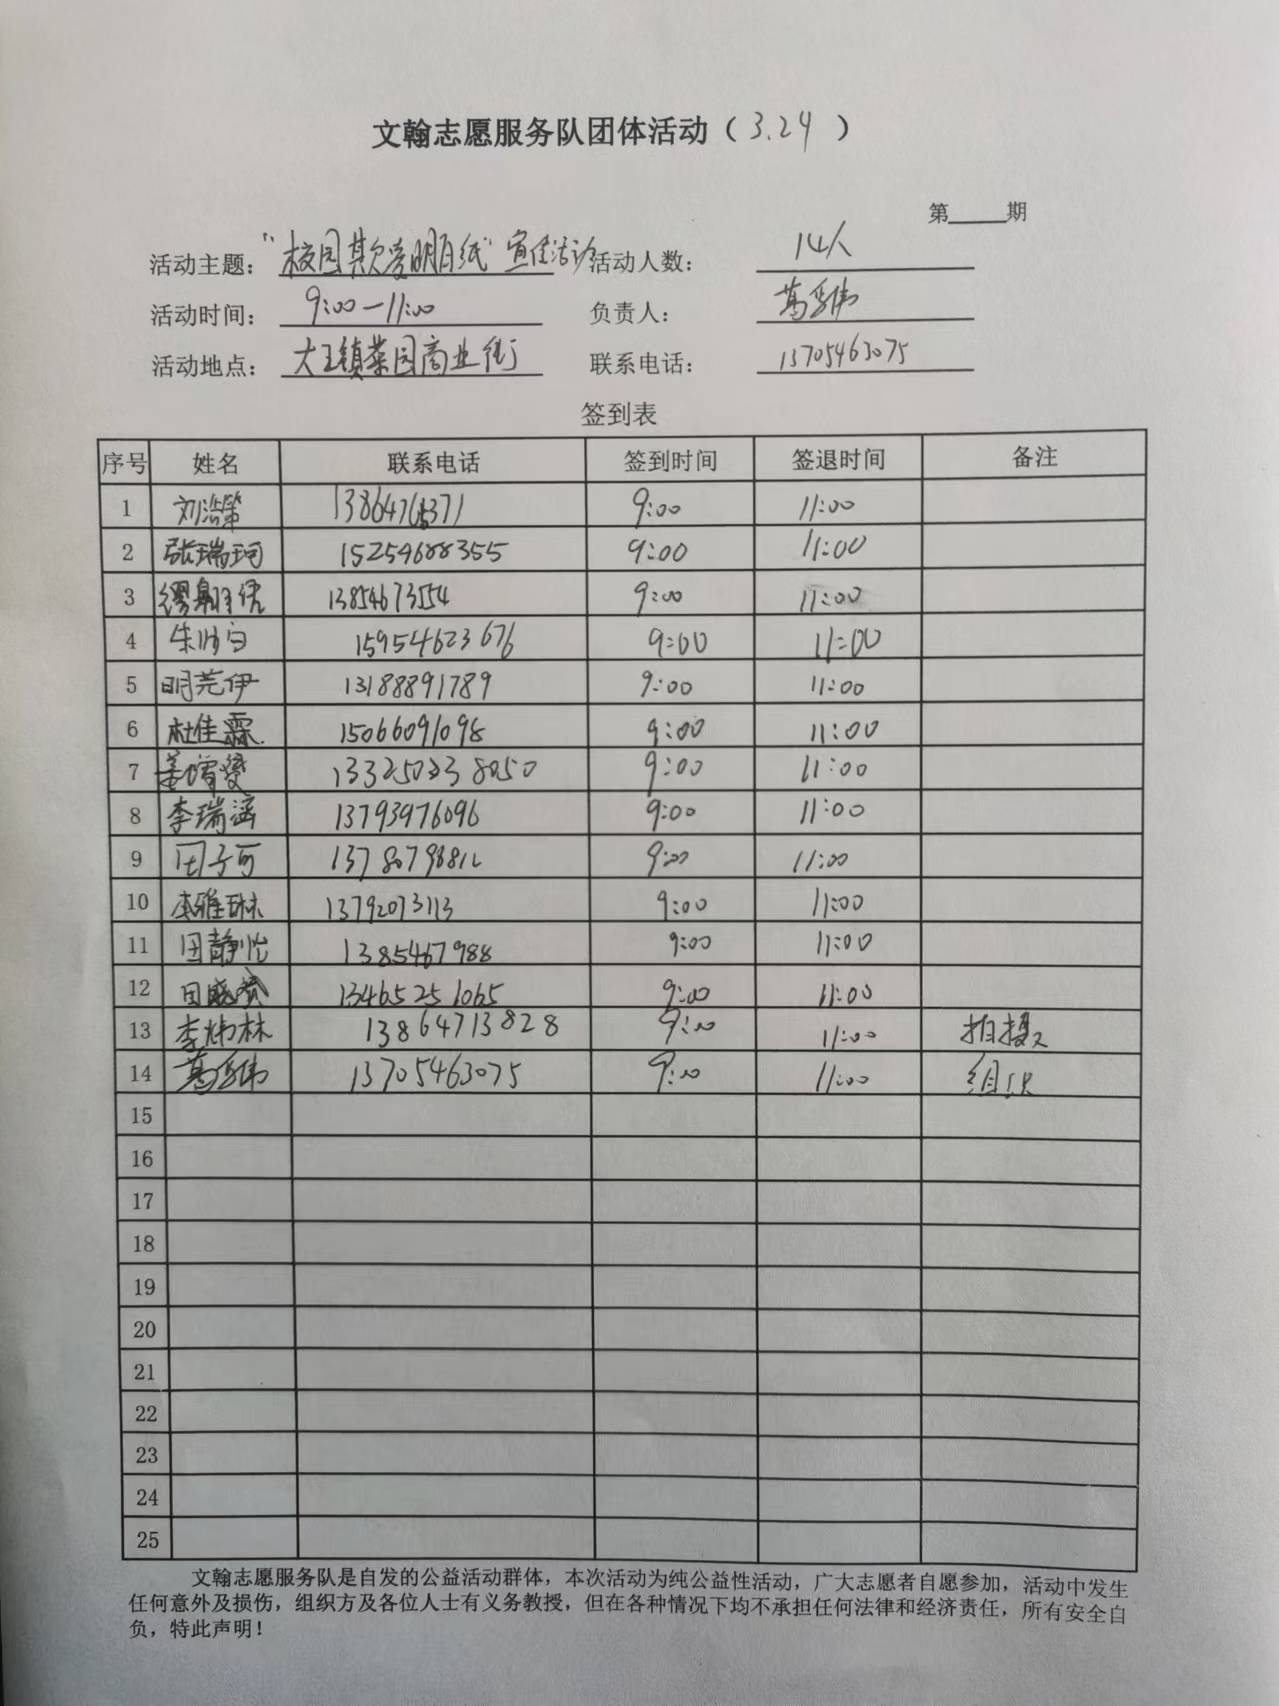 文翰志愿服务队团体活动（3.24）
第 期
活动主题：“校园欺凌明白纸”宣传活动 活动人数：14人
活动时间：9:00—11:00 负责人：葛
活动地点：大王镇菜园商业街 联系电话：13705463075
签到表
序号 姓名 联系电话 签到时间 签退时间 备注
1 刘浩 9:00 11:00
2 张瑞珂 15254688355 9:00 11:00
3 13854673554 9:00 11:00
4 朱 15954623676 9:00 11:00
5 明芫伊 13188891789 9:00 11:00
6 杜佳霖 15066091098 9:00 11:00
7 9:00 11:00
8 李瑞涵 13793976096 9:00 11:00
9 田子可 9:00 11:00
10 李雅琳 13792073113 9:00 11:00
11 田静怡 1385467988 9:00 11:00
12 田 13465251065 9:00 11:00
13 李炜林 13864713828 9:00 11:00 拍摄
14 葛 13705463075 9:00 11:00 组织
15
16
17
18
19
20
21
22
23
24
25
文翰志愿服务队是自发的公益活动群体，本次活动为纯公益性活动，广大志愿者自愿参加，活动中发生
任何意外及损伤，组织方及各位人士有义务教授，但在各种情况下均不承担任何法律和经济责任，所有安全自
负，特此声明！